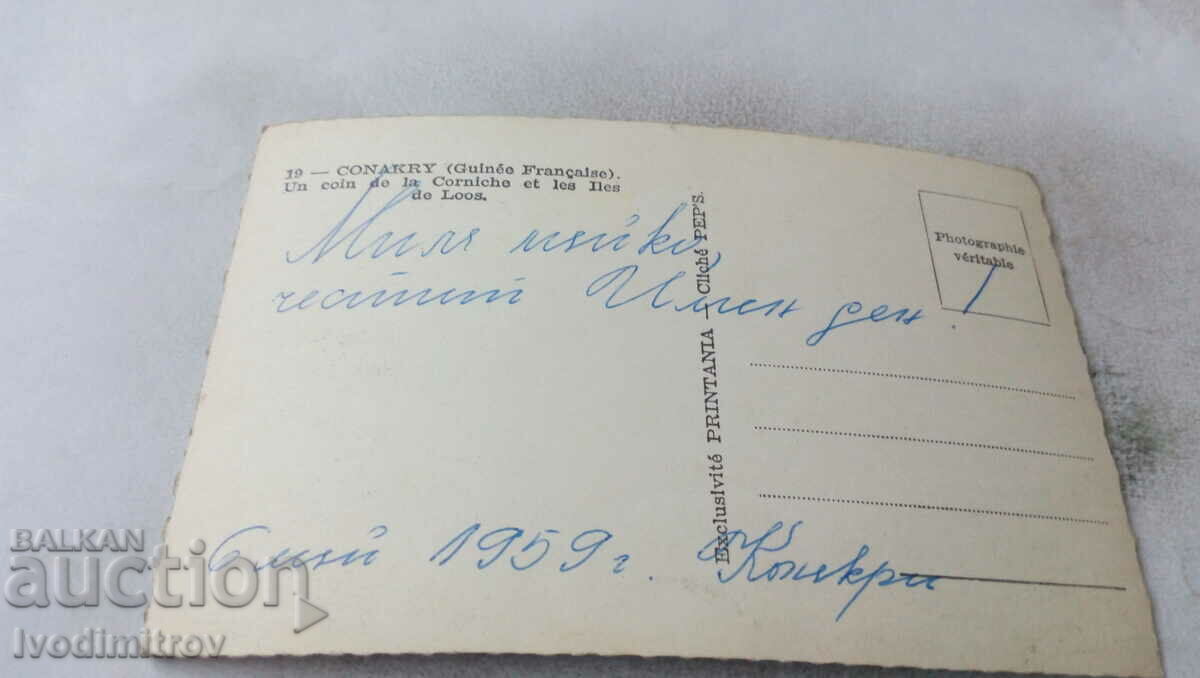 19 — CONAKRY (Guinée Française).
Un coin de la Corniche et les Iles
de Loos.
Мила
честит ден!
6 май 1959 г. Конакри
Exclusivité PRINTANIA — Cliché PEP'S.
Photographie
véritable
BALKAN
auction
Ivodimitrov